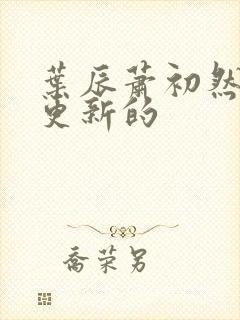 葉辰蕭初然
更新的
喬榮另